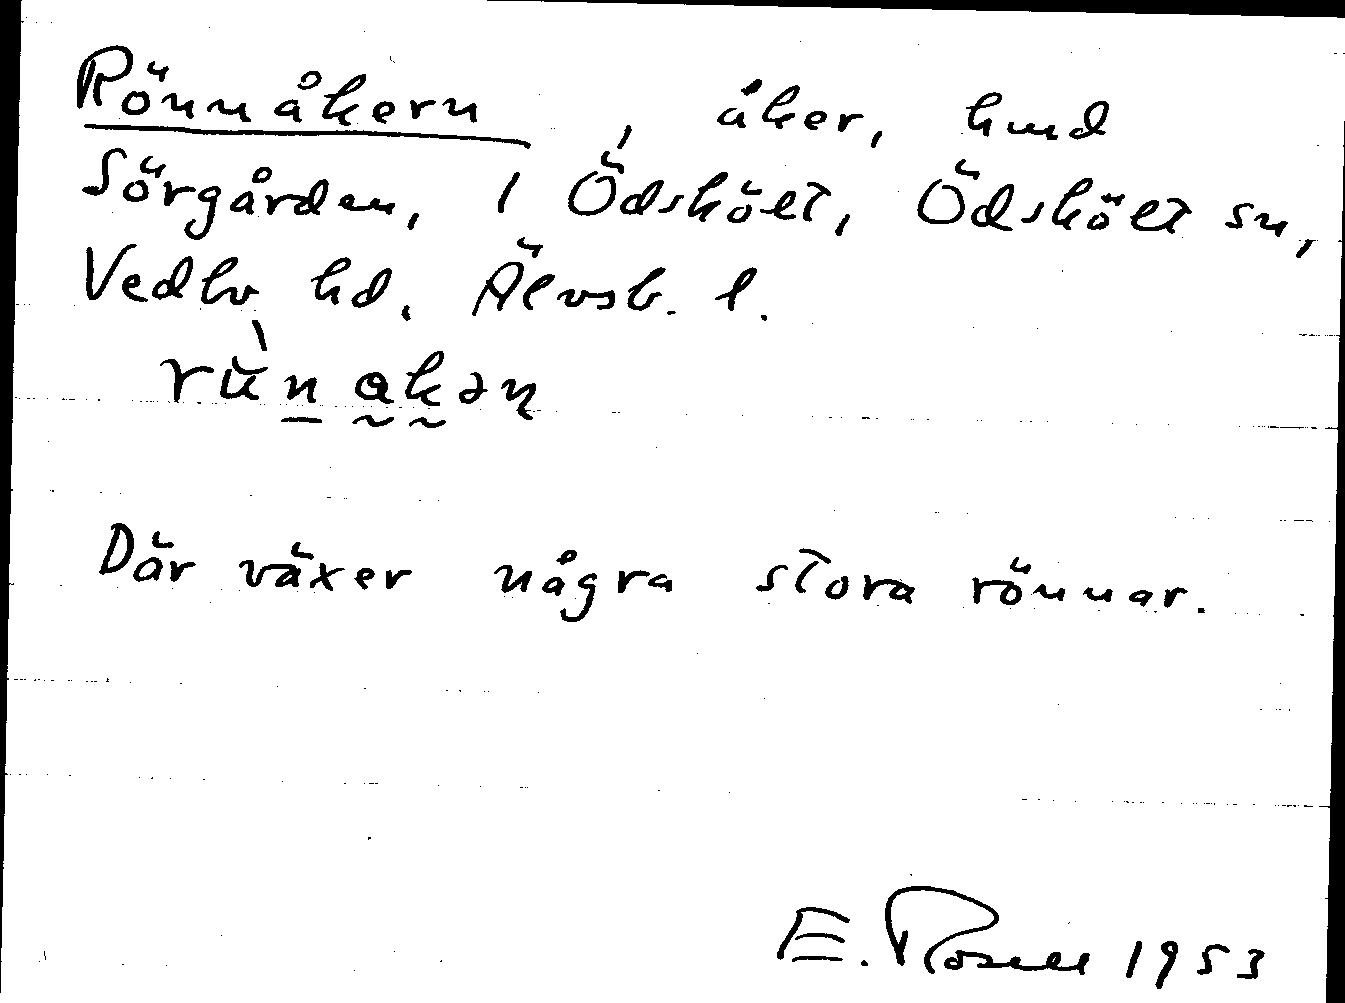 Rönnåkern, åker, hmd
Sörgården, 1 Ödskölt, Ödskölt sn,
Vedbo hd. Älvsb. l.
Där växer några stora rönnar.
E. Rosell 1953